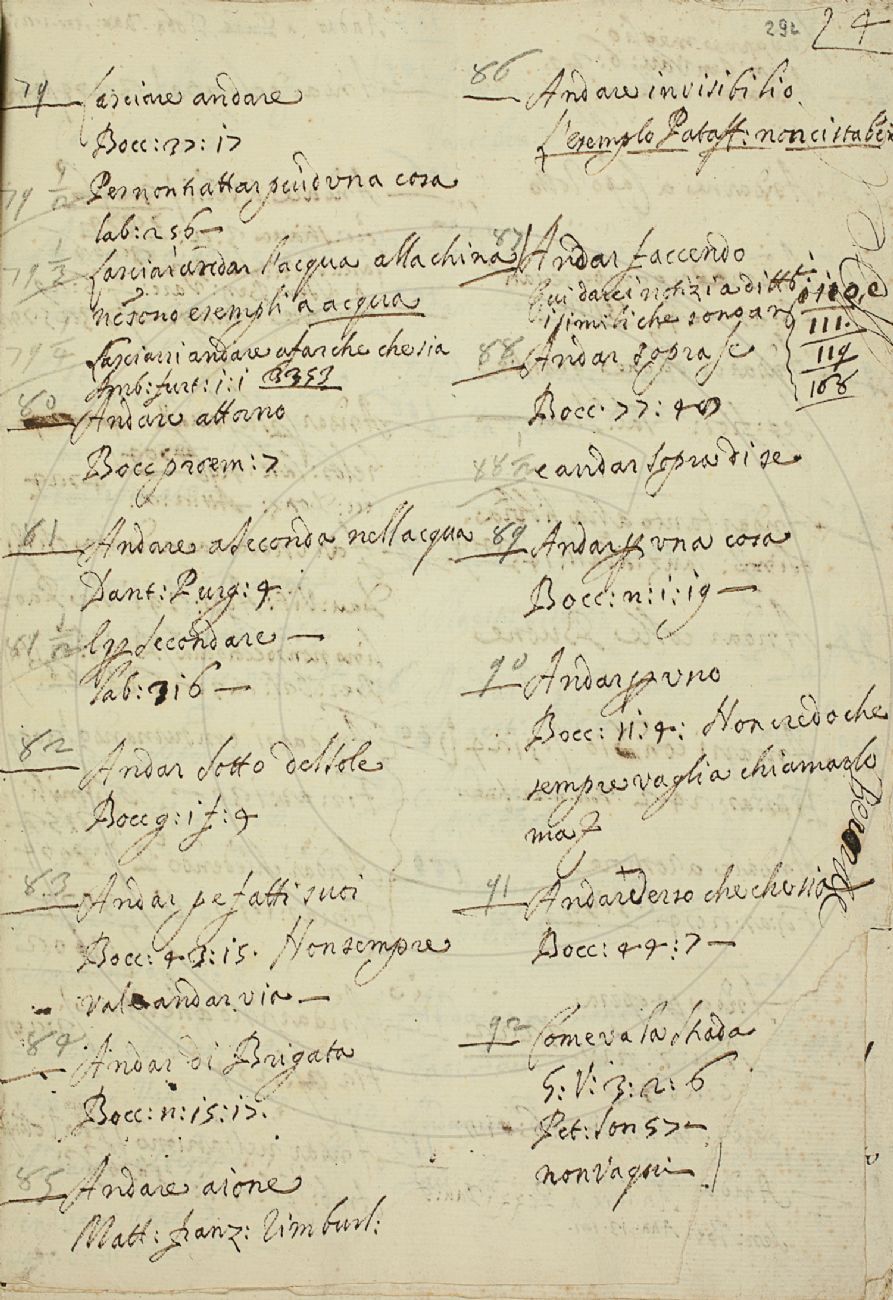 291 24
79 Lasciare andare
Bocc: 37: 17
79 1/2 Per non trattar più d'una cosa
lab: 256 —
79 1/3 Lasciar andar l'acqua alla china
ne sono esempli a acqua
79 1/4 Lasciarsi andare a far che che sia
Amb: furt: 1: 1 3353
80 Andare attorno
Bocc proem: 7
81 Andare a seconda nell acqua
Dant: Purg: 4
81 1/2 secondare —
lab: 316 —
82 Andar sotto del sole
Bocc g: 1 f: 4
83 Andar pe fatti suoi
Bocc: 43: 15. Non sempre
vale andar via —
84 Andar di Brigata
Bocc: n: 15: 17.
85 Andare aione
Matt: franz: rim burl:
86 Andare invisibilio
L'esemplo Pataff: non ci sta
87 Andar faccendo
Qui darci notizia di tt
i simili che son
110
111.
119
108
88 Andar sopra se
Bocc. 77: 48
88 1/2 e andar sopra di se
89 Andar p una cosa
Bocc: n: 1: 19 —
90 Andar p uno
Bocc: 11: 4: Non credo che
sempre vaglia chiamarlo
ma
91 Andar verso che che sia
Bocc: 44: 7 —
92 Come va la strada
G: V: 3: 2: 6
Pet: son 57 —
non va qui —